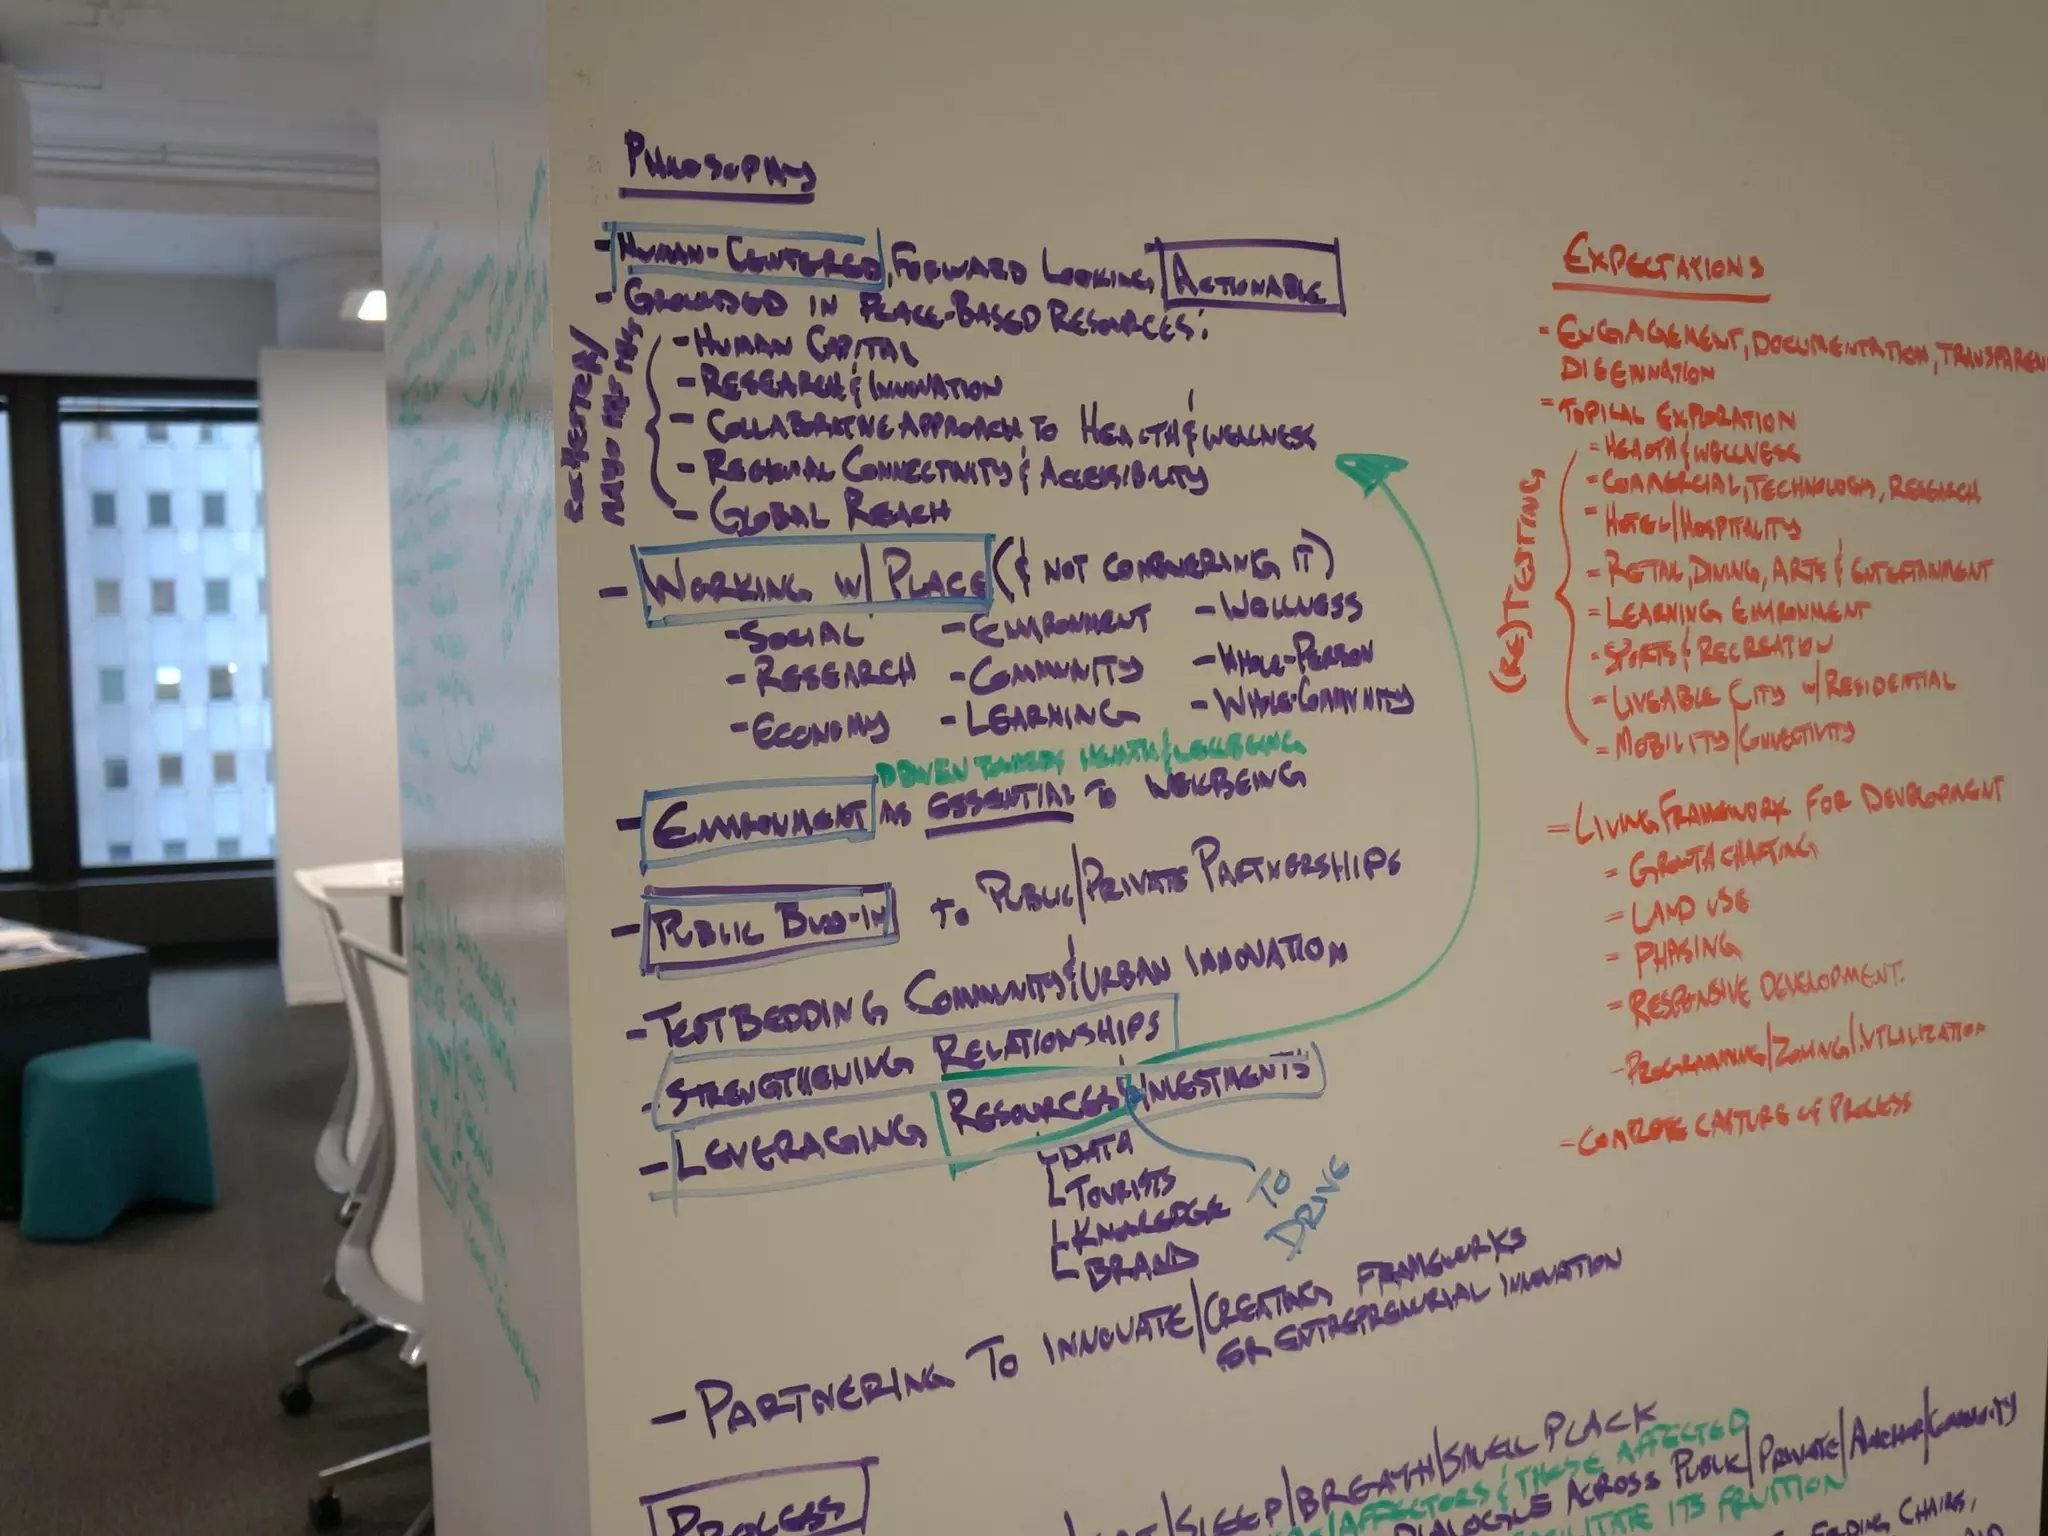 PHILOSOPHY
- HUMAN-CENTERED, FORWARD LOOKING, ACTIONABLE
- GROUNDED IN PLACE-BASED RESOURCES:
ROCHESTER/
- HUMAN CAPITAL
- RESEARCH & INNOVATION
- COLLABORATIVE APPROACH TO HEALTH & WELLNESS
- REGIONAL CONNECTIVITY & ACCESSIBILITY
- GLOBAL REACH
- WORKING W/ PLACE (& NOT CONQUERING IT)
- SOCIAL - ENVIRONMENT - WELLNESS
- RESEARCH - COMMUNITY - WHOLE-PERSON
- ECONOMY - LEARNING - WHOLE-COMMUNITY
DRIVEN TOWARDS HEALTH & WELLBEING
- ENVIRONMENT AS ESSENTIAL TO WELLBEING
- PUBLIC BUY-IN TO PUBLIC/PRIVATE PARTNERSHIPS
- TESTBEDDING COMMUNITY & URBAN INNOVATION
- STRENGTHENING RELATIONSHIPS
- LEVERAGING RESOURCES/INVESTMENTS
- DATA
TOURISTS
KNOWLEDGE
BRAND
TO
DRIVE
- PARTNERING TO INNOVATE/CREATING FRAMEWORKS
ENTREPRENEURIAL INNOVATION
PROCESS
/SLEEP/BREATH/SMELL PLACE
/AFFECTORS & THOSE AFFECTED
DIALOGUE ACROSS PUBLIC/PRIVATE/ANCHOR/COMMUNITY
ITS FRUITION
CHAIRS,
EXPECTATIONS
- ENGAGEMENT, DOCUMENTATION, TRANSPAREN
DISEMINATION
- TOPICAL EXPLORATION
(RE)TESTING
- HEALTH & WELLNESS
- COMMERCIAL, TECHNOLOGY, RESEARCH
- HOTEL/HOSPITALITY
- RETAIL, DINING, ARTS & ENTERTAINMENT
- LEARNING ENVIRONMENT
- SPORTS & RECREATION
- LIVEABLE CITY W/ RESIDENTIAL
- MOBILITY/CONNECTIVITY
- LIVING FRAMEWORK FOR DEVELOPMENT
- GROWTH CHARTING
- LAND USE
- PHASING
- RESPONSIVE DEVELOPMENT.
- PROGRAMMING/ZONING/UTILIZATION
- COMPLETE CAPTURE OF PROCESS